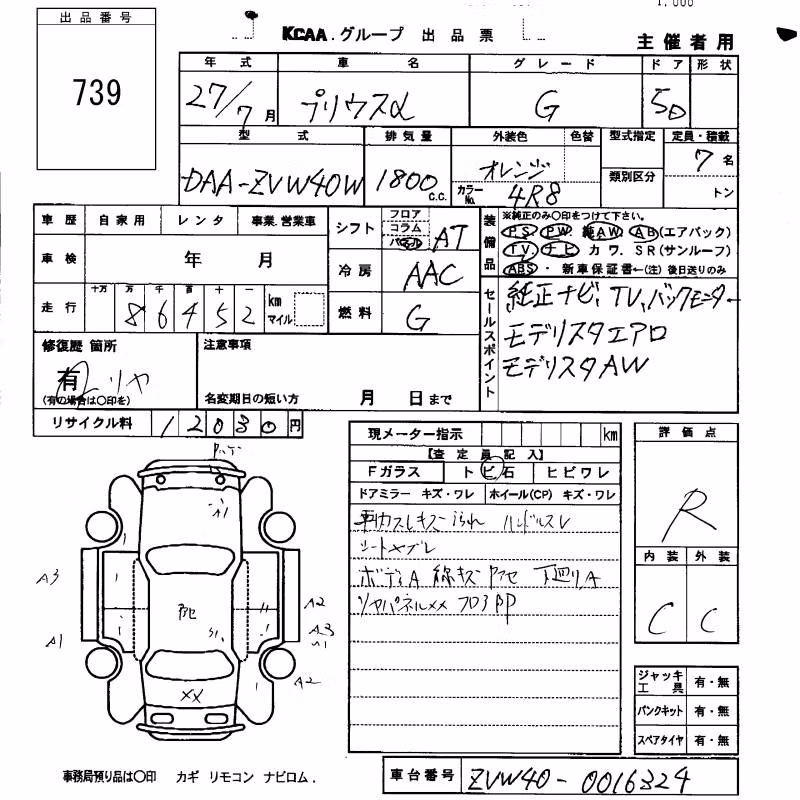 出品番号
739
KCAA.グループ 出品票
主催者用
年式 車名 グレード ドア 形状
27/7月 プリウスα G 5D
型式 排気量 外装色 色替 型式指定 定員・積載
DAA-ZVW40W 1800 C.C. オレンジ 類別区分 7名
カラーNo. 4R8 トン
車歴 自家用 レンタ 事業.営業車
シフト フロア コラム パネル AT
装備品 ※純正のみ〇印をつけて下さい。
PS PW 純AW AB(エアバック)
TV ナビ カワ. SR(サンルーフ)
ABS・新車保証書←(注)後日送りのみ
車検 年 月
冷房 AAC
走行 十万 万 千 百 十 一
86452 km マイル
燃料 G
セールスポイント
純正ナビ、TV、バックモニター
モデリスタエアロ
モデリスタAW
修復歴 箇所
有 リヤ
(有の場合は〇印を)
注意事項
名変期日の短い方 月 日まで
リサイクル料 12030円
現メーター指示 km
【査定員記入】
Fガラス トビ石 ヒビワレ
ドアミラー キズ・ワレ ホイール(CP) キズ・ワレ
ハンドルスレ
ボディA 線キズ 下廻りA
リヤパネルXX
評価点
R
内装 外装
C C
A3
A1
A2
A3
A2
XX
ジャッキ工具 有・無
パンクキット 有・無
スペアタイヤ 有・無
事務局預り品は〇印 カギ リモコン ナビロム.
車台番号 ZVW40-0016324